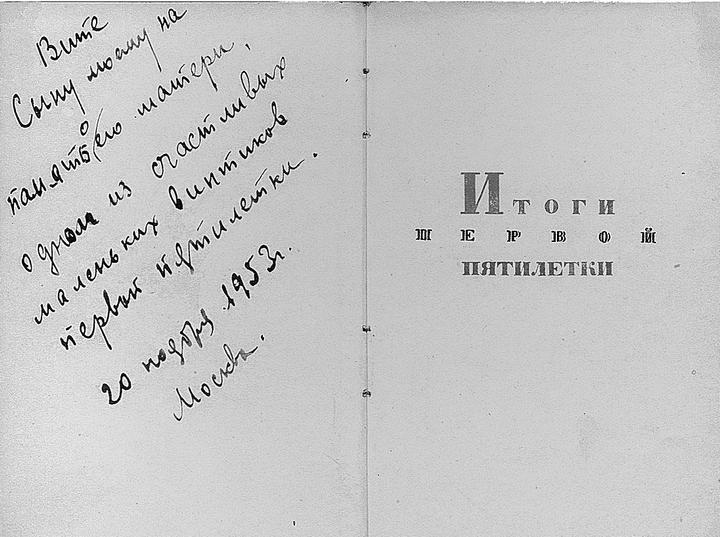 Вите
Сыну моему на
память о его матери,
одном из счастливых
маленьких винтиков
первой пятилетки.
20 ноября 1953г.
Москва.
Итоги
первой
пятилетки